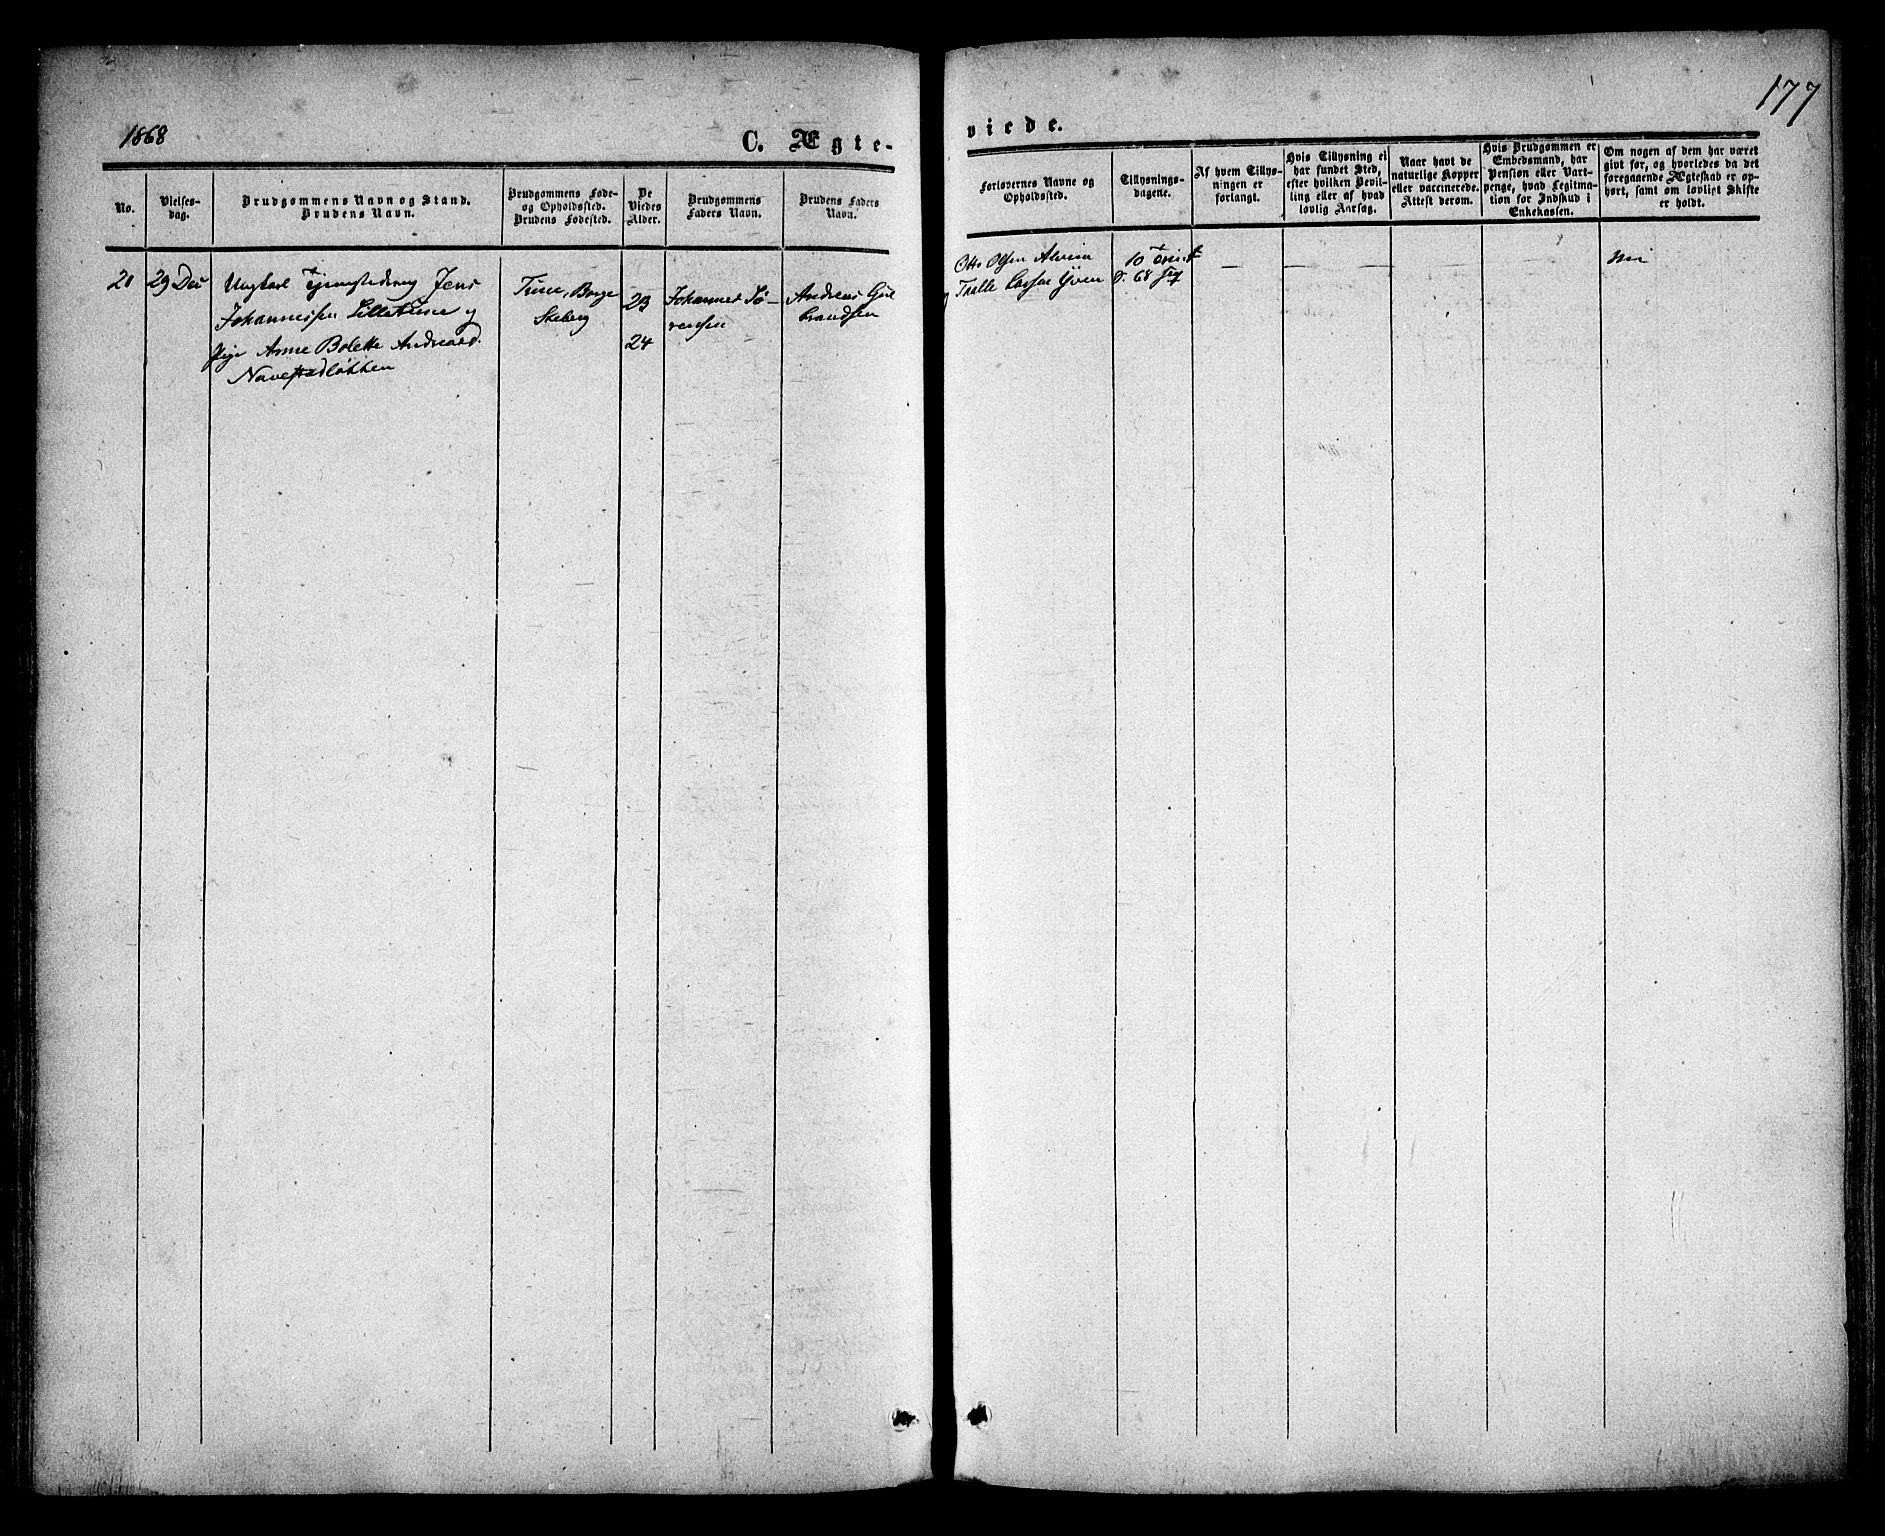 1868
C. Ægte-
viede.
177
No.
Vielses-
dag.
Brudgommens Navn og Stand.
Brudens Navn.
Brudgommens Føde-
og Opholdssted.
Brudens Fødested.
De
Viedes
Alder.
Brudgommens
Faders Navn.
Brudens Faders
Navn.
Forlovernes Navne og
Opholdssted.
Tillysnings-
dagene.
Af hvem Tillys-
ningen er
forlangt.
Hvis Tillysning ei
har fundet Sted,
efter hvilken Bevil-
ling eller af hvad
lovlig Aarsag.
Naar havt de
naturlige Kopper
eller vaccinerede.
Attest derom.
Hvis Brudgommen er
Embedsmand, har
Pension eller Vart-
penge, hvad Legitima-
tion for Indskud i
Enkekassen.
Om nogen af dem har været
givt før, og hvorledes da det
foregaaende Ægteskab er op-
hørt, samt om lovligt Skifte
er holdt.
21
29 Dec
Ungkarl Jens
Johannessen Lilletune og
Pige Anne Bolette Andreasd.
Navestadløkken
Tune, Borge
Skeberg
23
24
Johannes Sø-
rensen
Andreas Gul
brandsen
Otto Olsen Alvim
Tralle Larsen Yven
10 Trinit
S. 68
Nei